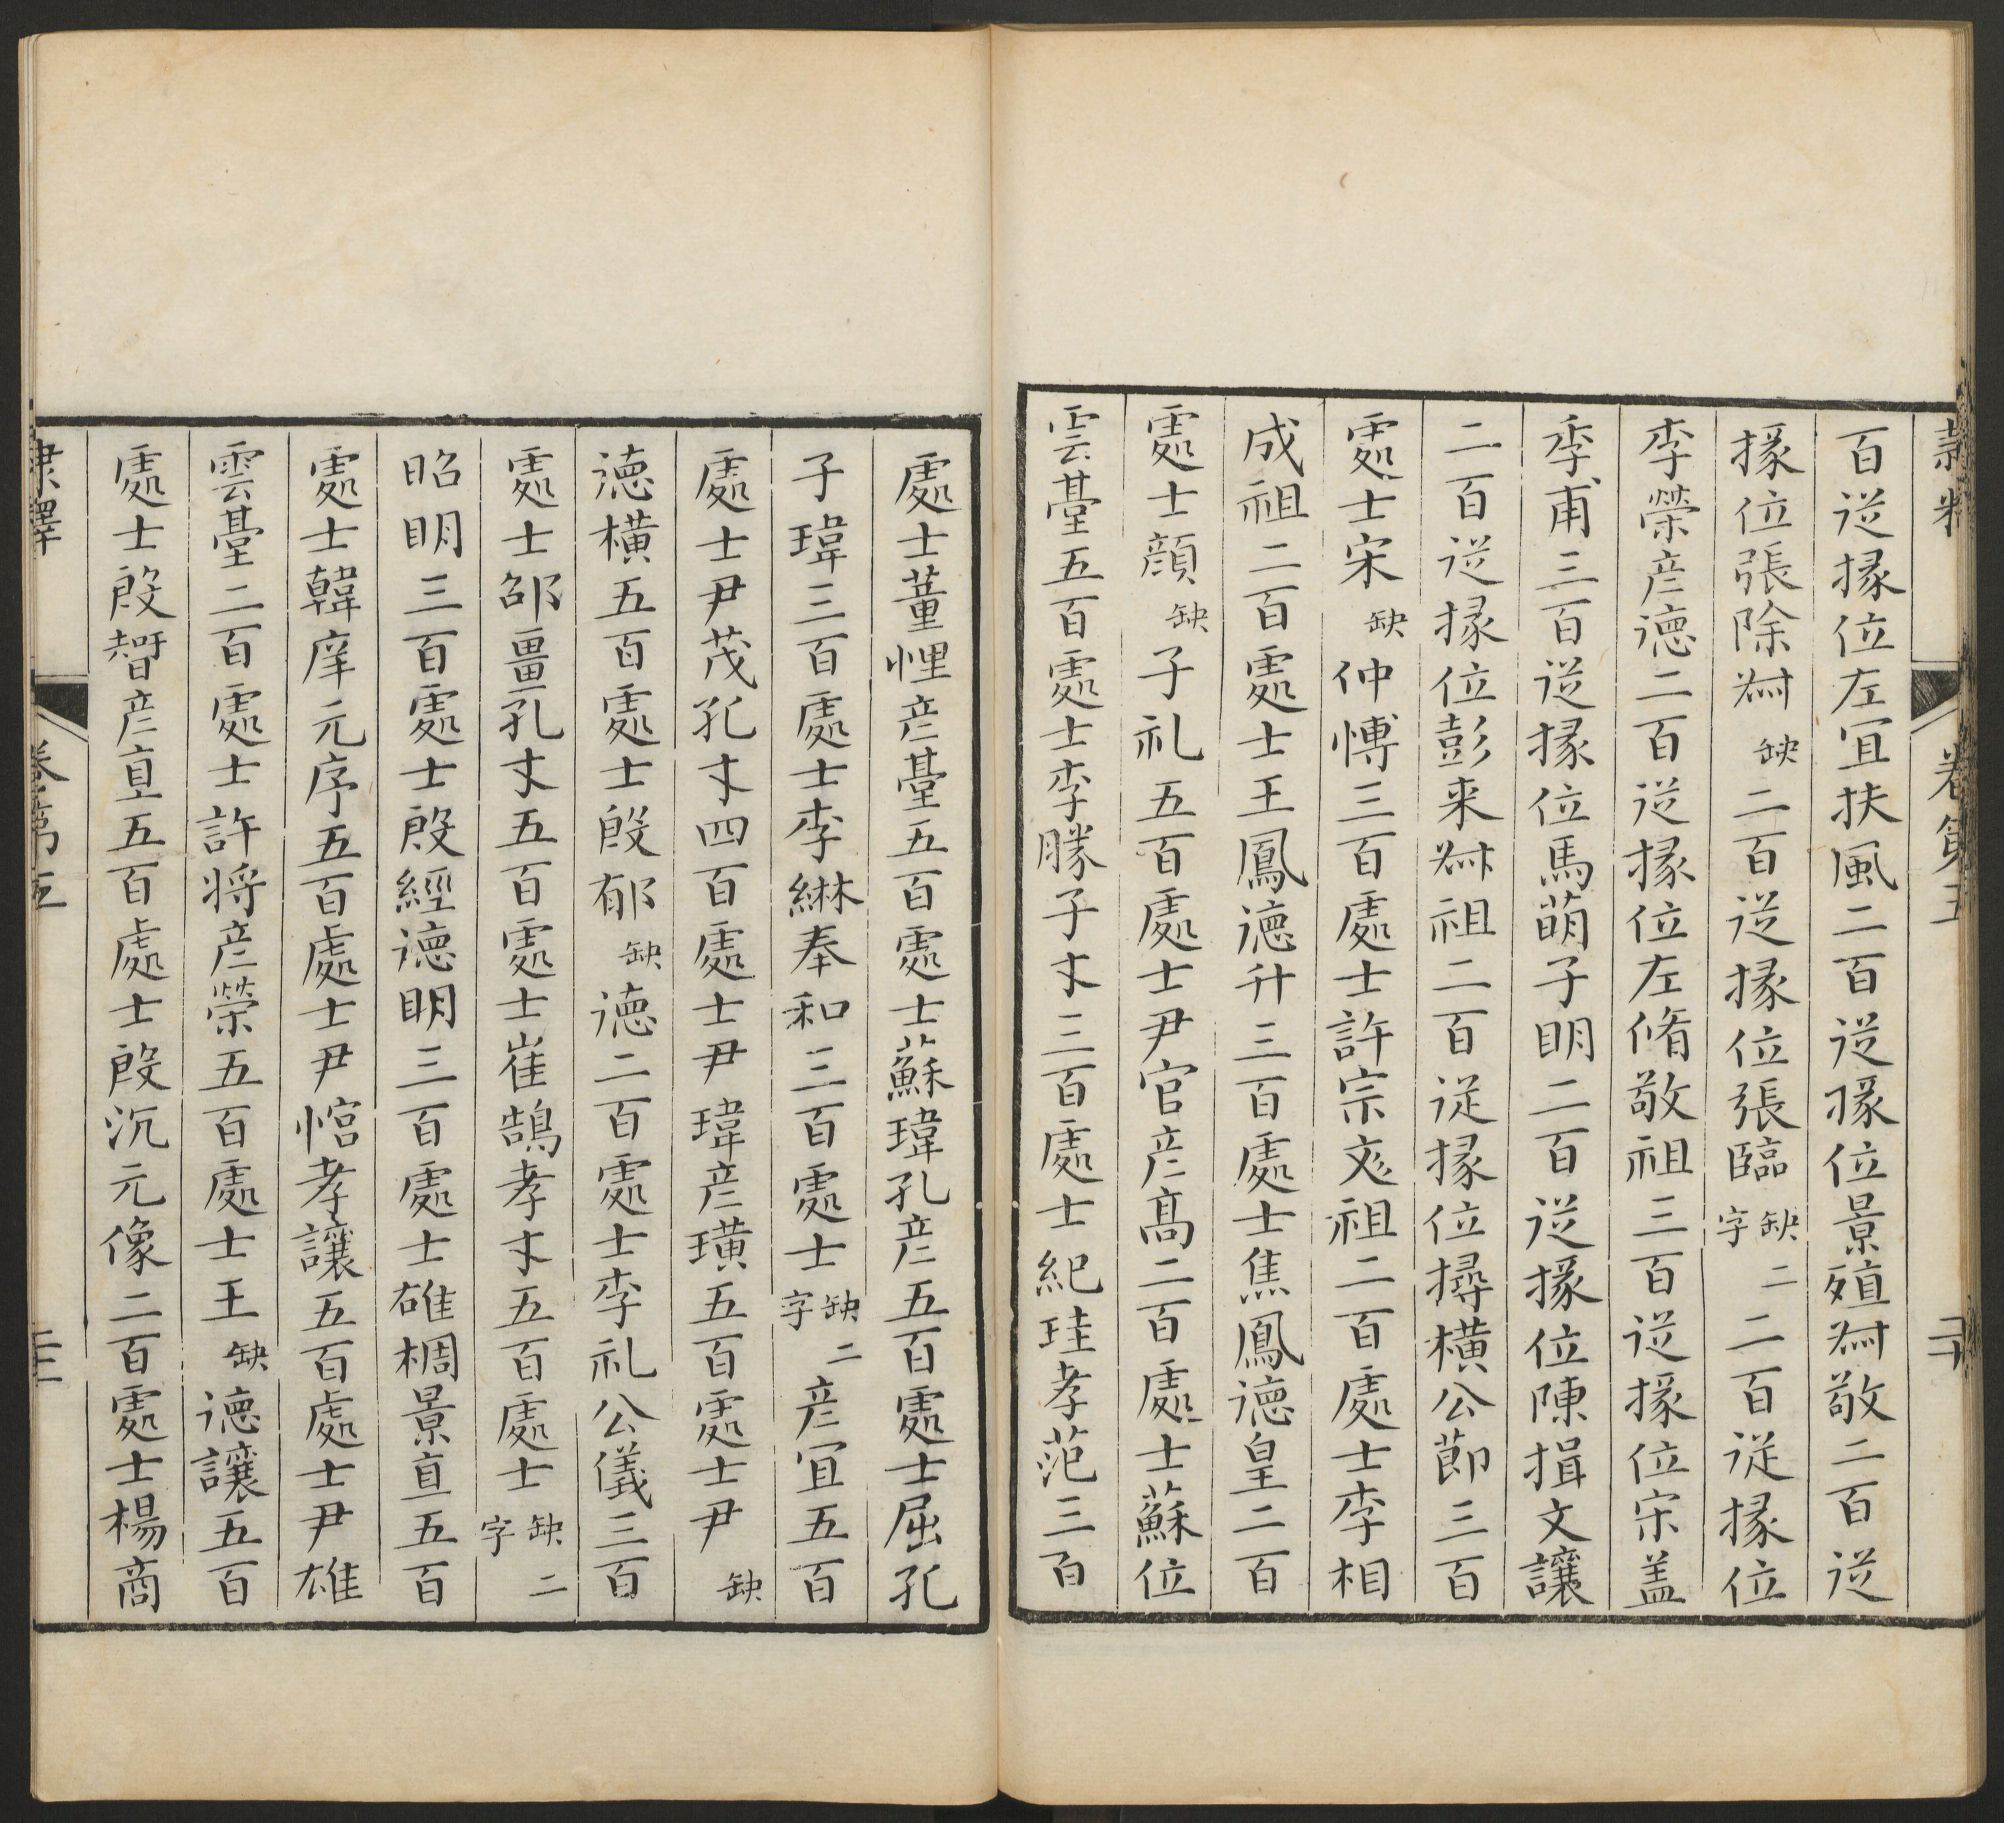 隸釋 卷第五 二十
百從掾位左冝扶風二百從掾位景殖敬二百從
掾位張除缺二百從掾位張臨缺二字二百從掾位
李榮彦德二百從掾位左脩敬祖三百從掾位宋盖
季甫三百從掾位馬萌子明二百從掾位陳揖文讓
二百從掾位彭来祖二百從掾位橫公莭三百
處士宋缺仲愽三百處士許宗祖二百處士李相
成祖二百處士王鳳德升三百處士焦鳳德皇二百
處士顔缺子礼五百處士尹官彦髙二百處士蘇位
雲臺五百處士李勝子才三百處士紀珪孝范三百
處士董悝彦臺五百處士蘇瑋孔彦五百處士屈孔
子瑋三百處士李綝奉和三百處士缺二字彦冝五百
處士尹茂孔才四百處士尹瑋彦璜五百處士尹缺
德橫五百處士殷郁缺德二百處士李礼公儀三百
處士邵畺孔才五百處士崔鵠孝才五百處士缺二字
昭明三百處士殷經德明三百處士雄椆景直五百
處士韓庠元序五百處士尹悺孝讓五百處士尹雄
雲臺二百處士許將彦榮五百處士王缺德讓五百
處士殷智彦直五百處士殷沉元像二百處士楊商
隸釋 卷第五